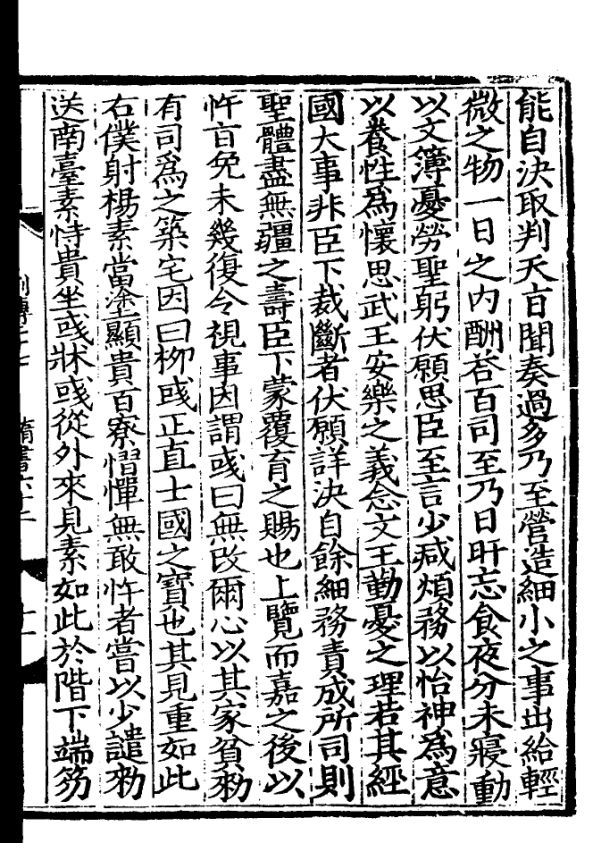 能自決取判天㫖聞奏過多乃至營造細小之事出給輕
微之物一日之內酬荅百司至乃日旰忘食夜分未寢動
以文簿憂勞聖躬伏願思臣至言少减煩務以怡神爲意
以養性爲懷思武王安樂之義念文王勤憂之理若其經
國大事非臣下裁斷者伏願詳決自餘細務責成所司則
聖體盡無疆之壽臣下蒙覆育之賜也上覽而嘉之後以
忤㫖免未幾復令視事因謂彧曰無改爾心以其家貧勑
有司爲之築宅因曰柳彧正直士國之寶也其見重如此
右僕射楊素當塗顯貴百寮慴憚無敢忤者嘗以少譴勑
送南臺素恃貴坐彧牀彧從外來見素如此於階下端笏
列傳二十七 隋書六十二